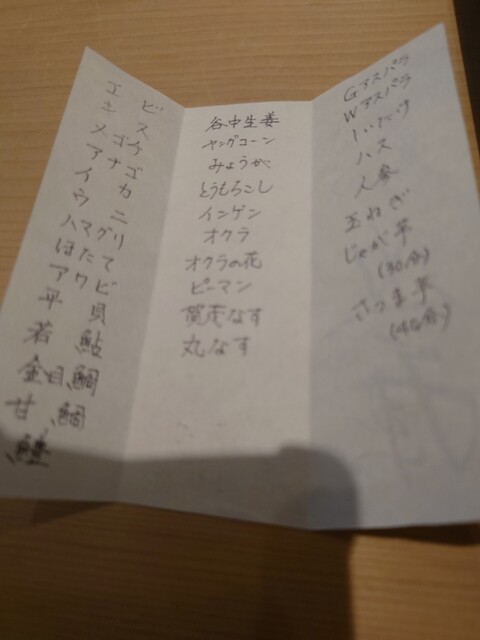 エビ
キス
メゴチ
アナゴ
イカ
ウニ
ハマグリ
ほたて
アワビ
平貝
若鮎
金目鯛
甘鯛
谷中生姜
ヤングコーン
みょうが
とうもろこし
インゲン
オクラ
オクラの花
ピーマン
賀茂なす
丸なす
Gアスパラ
Wアスパラ
しいたけ
ハス
人参
玉ねぎ
じゃが芋
(30分)
さつま芋
(40分)